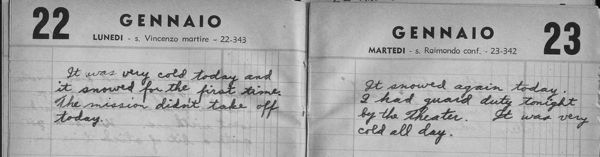 22
GENNAIO
LUNEDI - s. Vincenzo martire - 22-343
It was very cold today and
it snowed for the first time.
The mission didn't take off
today.
GENNAIO
23
MARTEDI - s. Raimondo conf. - 23-342
It snowed again today.
I had guard duty tonight
by the theater. It was very
cold all day.